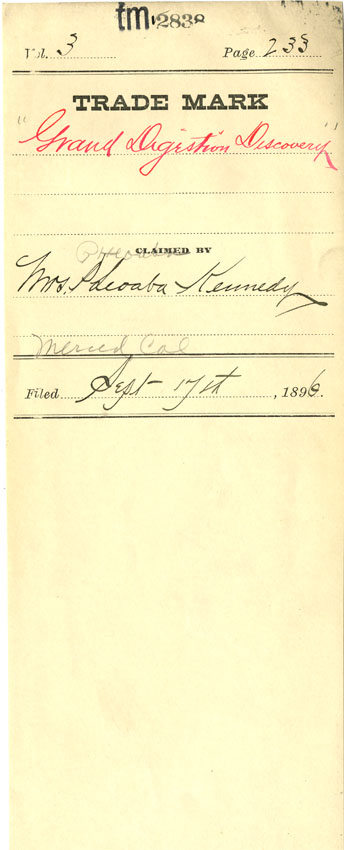 tm 2838
Vol. 3 Page 233
TRADE MARK
"Grand Digestion Discovery"
CLAIMED BY
Mrs. Kennedy
Merced Cal
Filed Sept 17th, 1896.